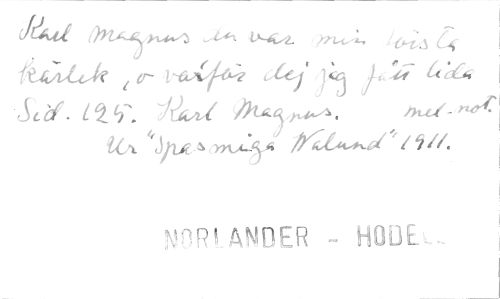 Karl Magnus du var min första
kärlek, o varför dej jag fått lida
Sid. 125. Karl Magnus. med not.
Ur "Spasmiga Walund" 1911.
NORLANDER - HODELL